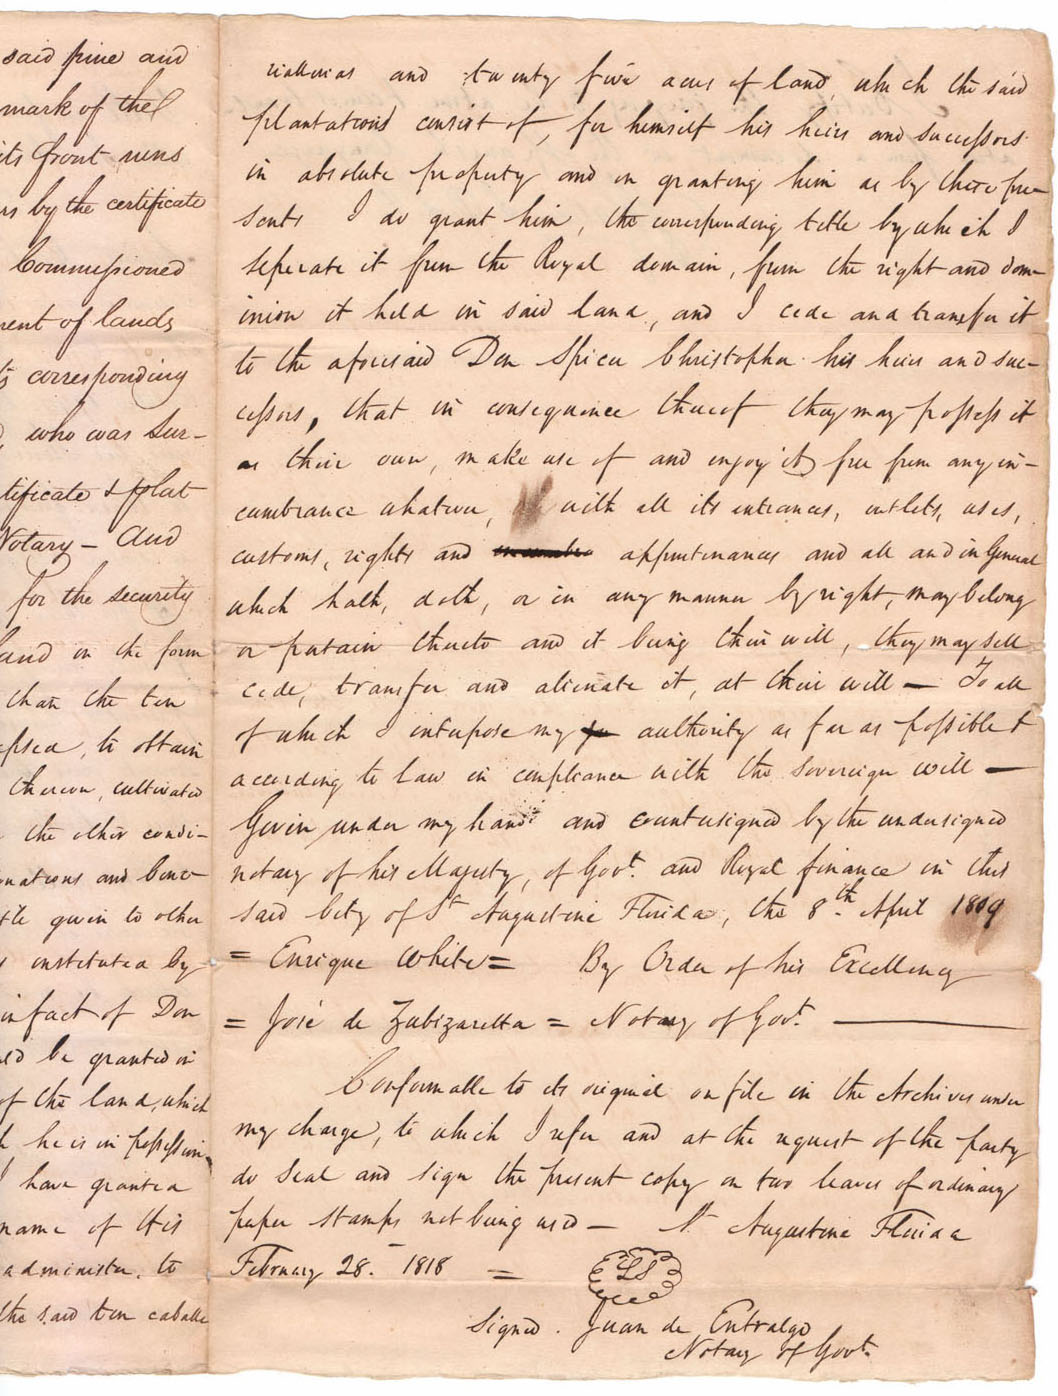 said pine and
mark of the
its front runs
by the certificate
Commissioned
ment of lands
corresponding
, who was Sur-
tificate & plat
Notary - And
for the security
land in the form
than the ten
, to obtain
thereon, cultivated
the other condi-
nations and bene-
tle given to other
instituted by
in fact of Don
ld be granted in
of the land, which
he is in possession
I have granted
name of His
administer, to
the said ten caballe
riallerias and twenty five acres of land, which the said
plantations consist of, for himself his heirs and successors
in absolute property and in granting him as by these pre-
sents I do grant him, the corresponding title by which I
seperate it from the Royal domain, from the right and dom-
inion it held in said land, and I cede and transfer it
to the aforesaid Don Spicer Christopher his heirs and suc-
cessors, that in consequence thereof they may possess it
as their own, make use of and enjoy it free from any in-
cumbrance whatever, with all its entrances, outlets, uses,
customs, rights and appurtenances and all and in General
which hath, doth, or in any manner by right, may belong
or pertain thereto and it being their will, they may sell
cede, transfer and alienate it, at their will — To all
of which I interpose my authority as far as possible &
according to law in compliance with the sovereign will —
Given under my hand and countersigned by the undersigned
notary of his Majesty, of Govt. and Royal finance in this
said City of St Augustine Florida, the 8th. April 1809
= Enrique White = By Order of his Excellency
= José de Zubizaretta = Notary of Govt. —
Conformable to its original on file in the Archives under
my charge, to which I refer and at the request of the party
do seal and sign the present copy on two leaves of ordinary
paper stamps not being used — St. Augustine Florida
February 28. 1818 =
LS
Signed. Juan de Entralgo
Notary of Govt.